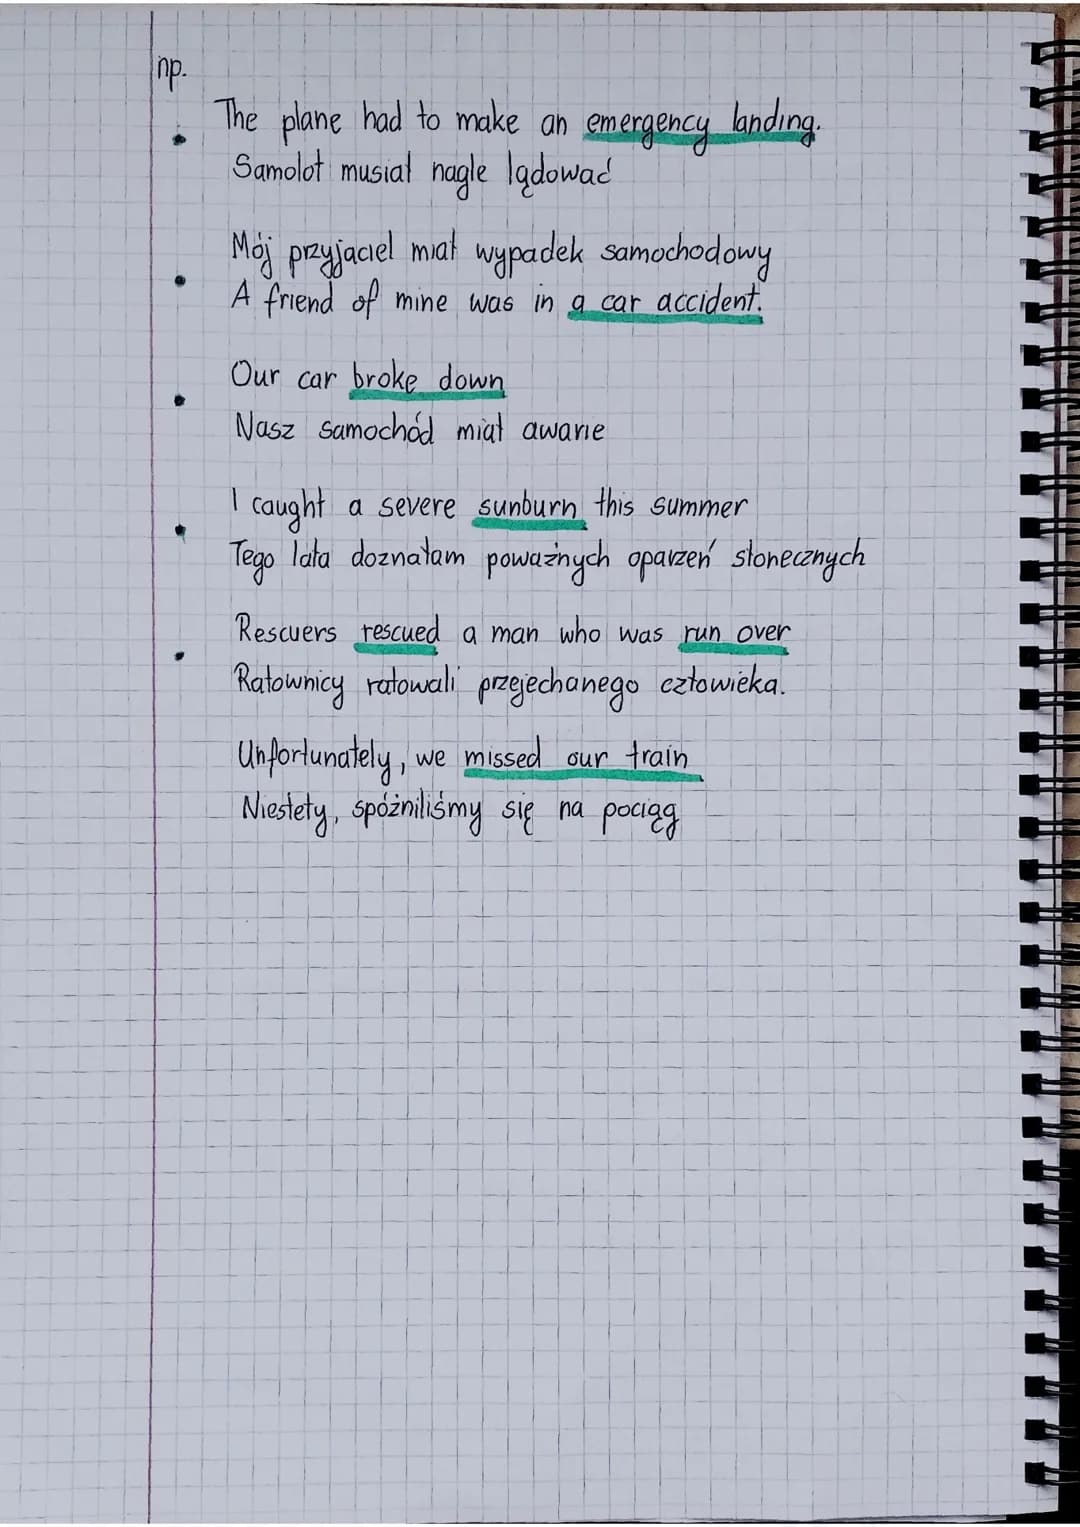 np.
The plane had to make an emergency landing.
Samolot musiał nagle lądować
Mój przyjaciel miał wypadek samochodowy
A friend of mine was in a car accident.
Our car broke down
Nasz samochód miał awarie
I caught a severe sunburn this summer
Tego lata doznałam poważnych oparzeń słonecznych
Rescuers rescued a man who was run over
Ratownicy ratowali przejechanego człowieka.
Unfortunately, we missed our train
Niestety, spóźniliśmy się na pociąg